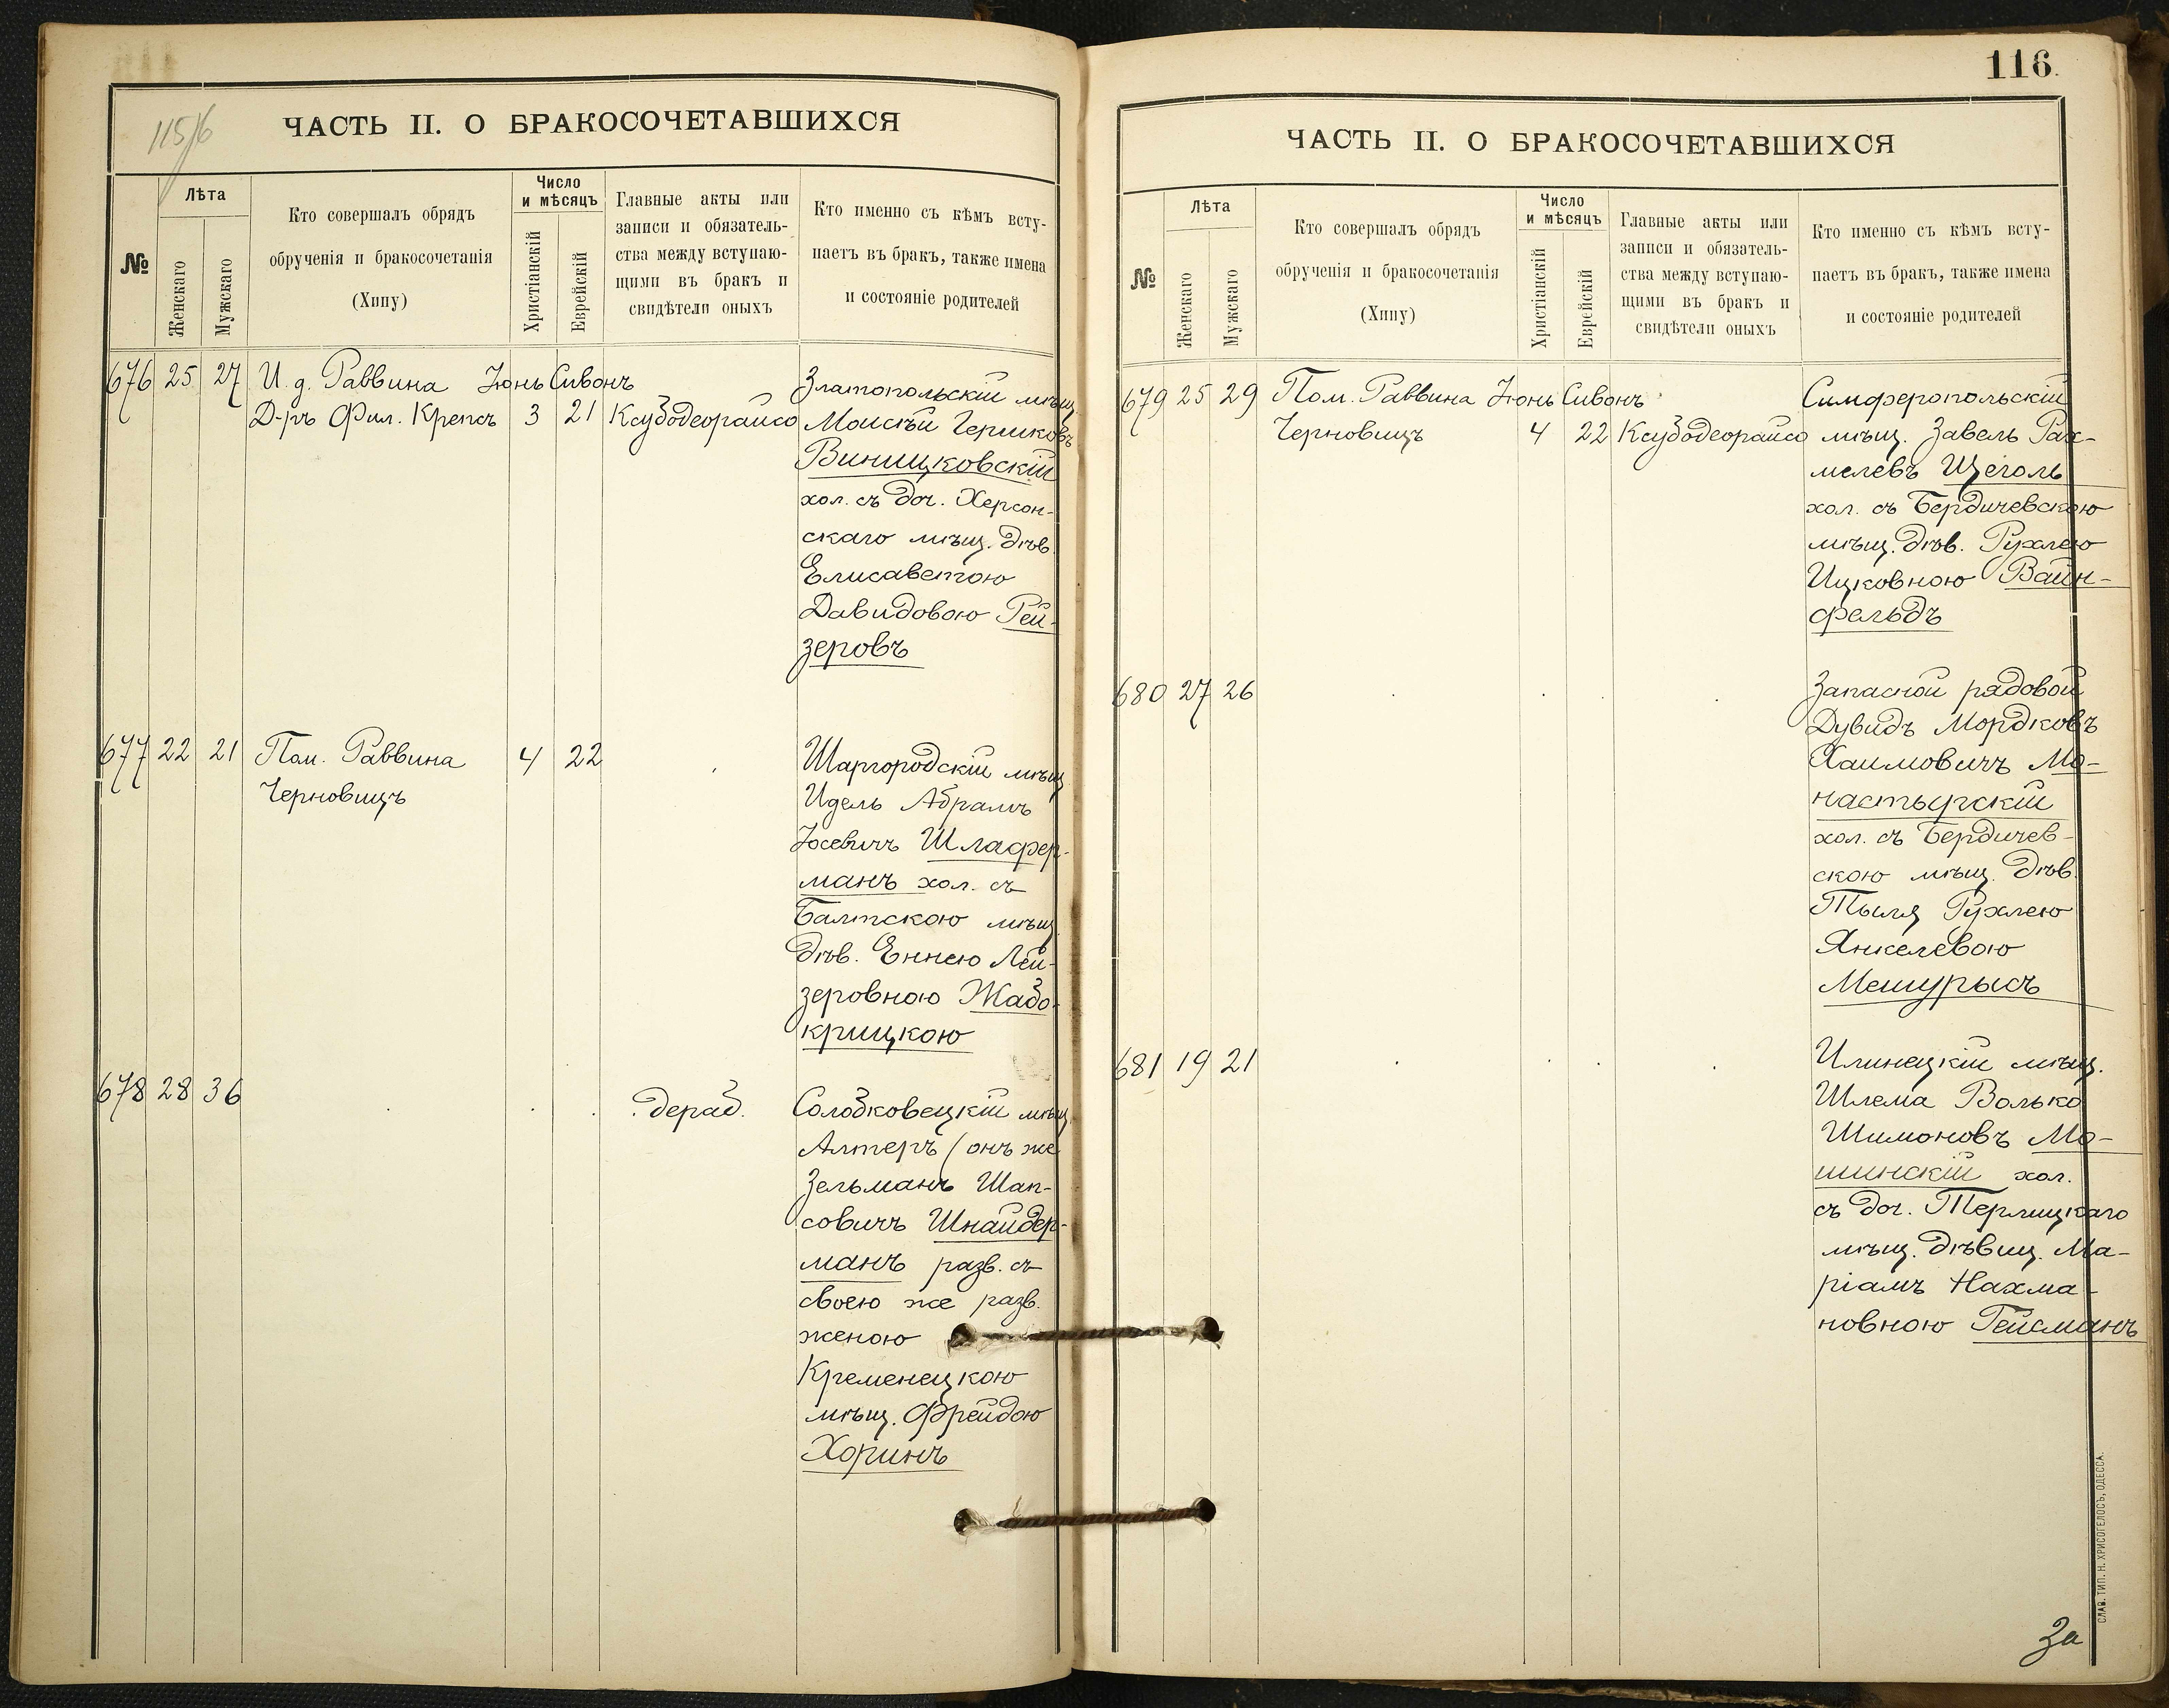 115/6
ЧАСТЬ II. О БРАКОСОЧЕТАВШИХСЯ
№
Лѣта
Женскаго
Мужскаго
Кто совершалъ обрядъ
обрученія и бракосочетанія
(Хипу)
Число
и мѣсяцъ
Христіанскій
Еврейскій
Главные акты или
записи и обязатель-
ства между вступаю-
щими въ бракъ и
свидѣтели оныхъ
Кто именно съ кѣмъ всту-
паетъ въ бракъ, также имена
и состояніе родителей
676 25 27 И. д. Раввина Іюнь Сивонъ
Д-ръ Фил. Крепсъ 3 21 Ксубодеорайсо
Златопольскій мѣщ.
Моисѣй Гершковъ
Виницковскій
хол. съ доч. Херсон-
скаго мѣщ. дѣв.
Елисаветою
Давидовою Рей-
зеровъ
677 22 21 Пом. Раввина 4 22
Черновицъ
Шаргородскій мѣщ.
Идель Абрамъ
Іосевичъ Шлафер-
манъ хол. съ
Балтскою мѣщ.
дѣв. Еннею Лей-
зеровною Жабо-
крицкою
678 28 36 . . . .дераб.
Солобковецкій мѣщ.
Алтеръ (онъ же
Зельманъ Шап-
совичъ Шнайдер-
манъ разв. съ
своею же разв.
женою
Кременецкою
мѣщ. Фрейдою
Хоринъ
116.
ЧАСТЬ II. О БРАКОСОЧЕТАВШИХСЯ
№
Лѣта
Женскаго
Мужскаго
Кто совершалъ обрядъ
обрученія и бракосочетанія
(Хипу)
Число
и мѣсяцъ
Христіанскій
Еврейскій
Главные акты или
записи и обязатель-
ства между вступаю-
щими въ бракъ и
свидѣтели оныхъ
Кто именно съ кѣмъ всту-
паетъ въ бракъ, также имена
и состояніе родителей
679 25 29 Пом. Раввина Іюнь Сивонъ
Черновицъ 4 22 Ксубодеорайсо
Симферопольскій
мѣщ. Завель Рах-
мелевъ Щеголь
хол. съ Бердичевскою
мѣщ. дѣв. Рухлею
Ицковною Вайн-
фельдъ
680 27 26
Запасной рядовой
Дувидъ Мордковъ
Хаимовичъ Мо-
настырскій
хол. съ Бердичев-
скою мѣщ. дѣв.
Тыля Рухлею
Янкелевою
Мешурысъ
681 19 21
Илинецкій мѣщ.
Шлема Волько
Шимоновъ Мо-
шинскій хол.
съ доч. Терлицкаго
мѣщ. дѣвиц. Ма-
ріамъ Нахма-
новною Гейсманъ
За
СЛАВ. ТИП. Н. ХРИСОГЕЛОСЪ, ОДЕССА.